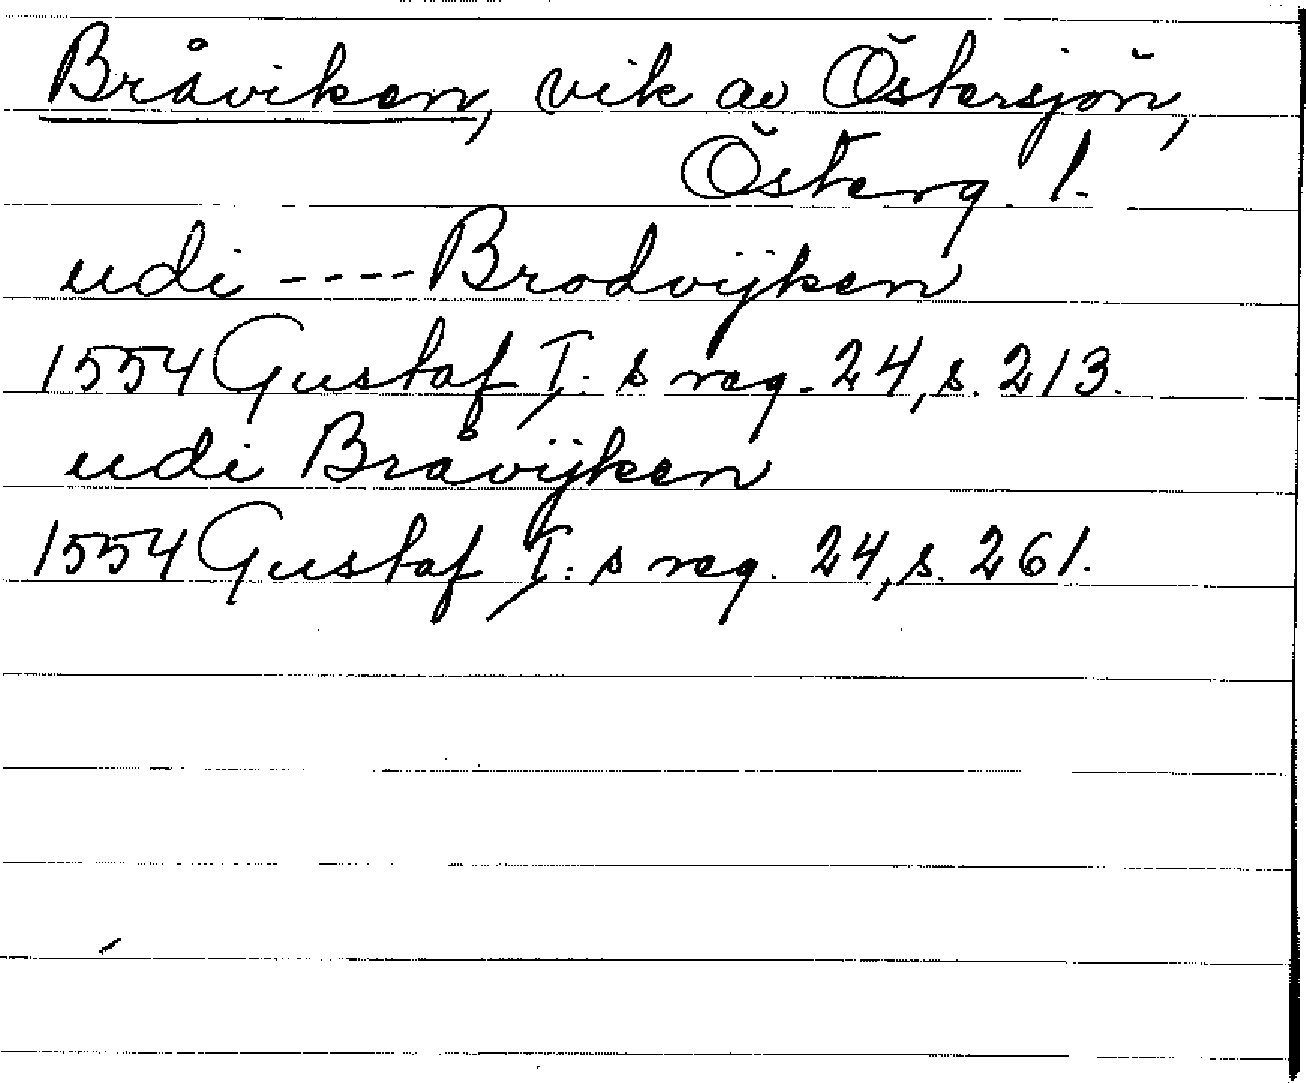 Bråviken, vik av Östersjön,
Österg. l.
udi ---- Brodvijken
1554 Gustaf I: s reg. 24, s. 213.
udi Bråvijken
1554 Gustaf I: s reg. 24, s. 261.